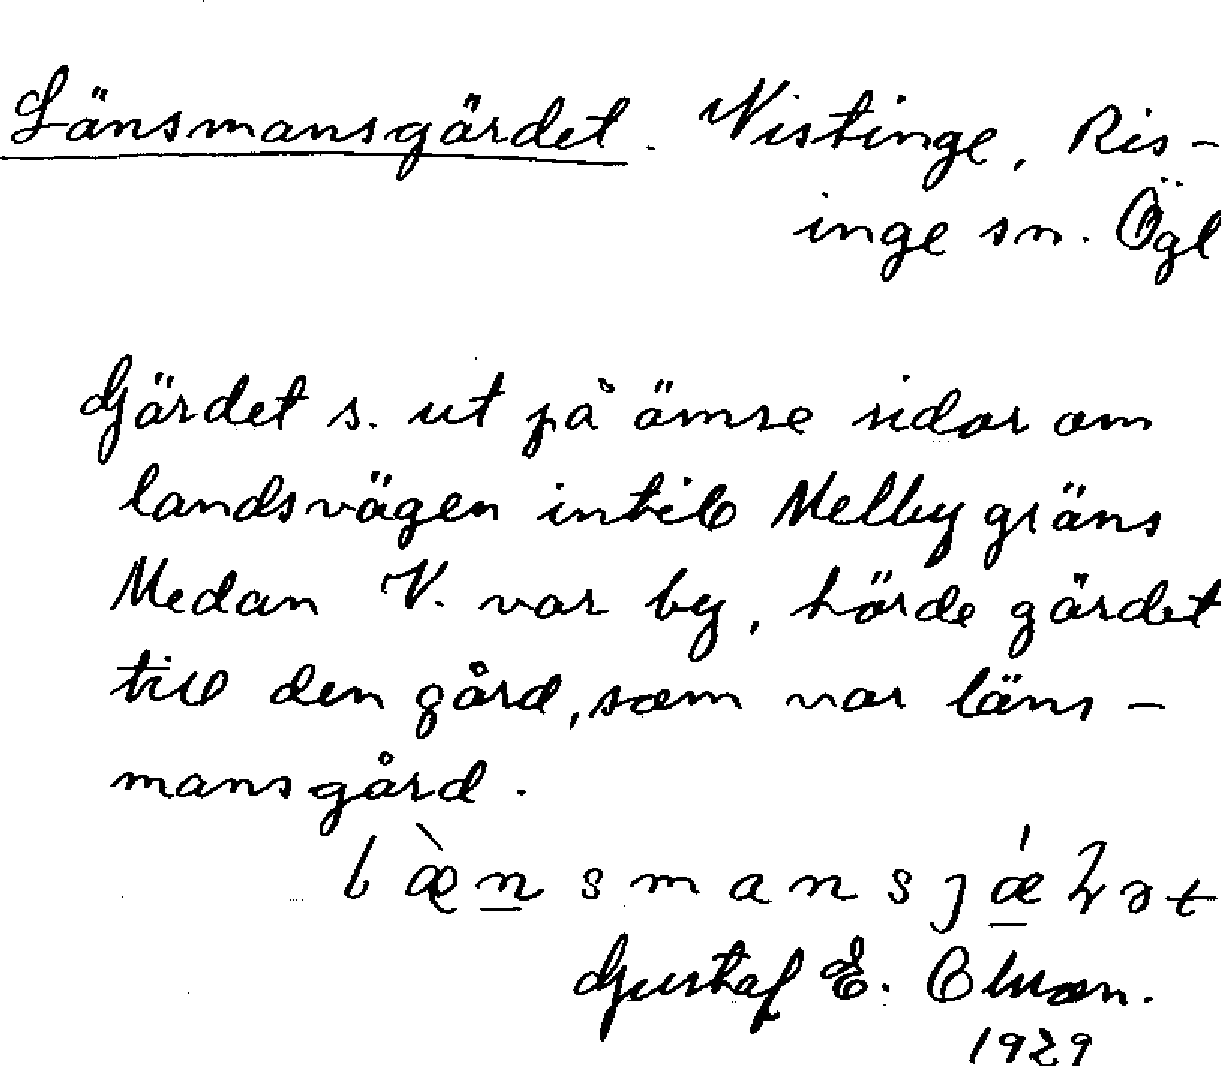 Länsmansgärdet. Vistinge, Ris-
inge sn. Ögl
Gärdet s. ut på ömse sidor om
landsvägen intill Melby gräns
Medan V. var by, hörde gärdet
till den gård, som var läns-
mansgård.
Gustaf E. Olsson.
1929